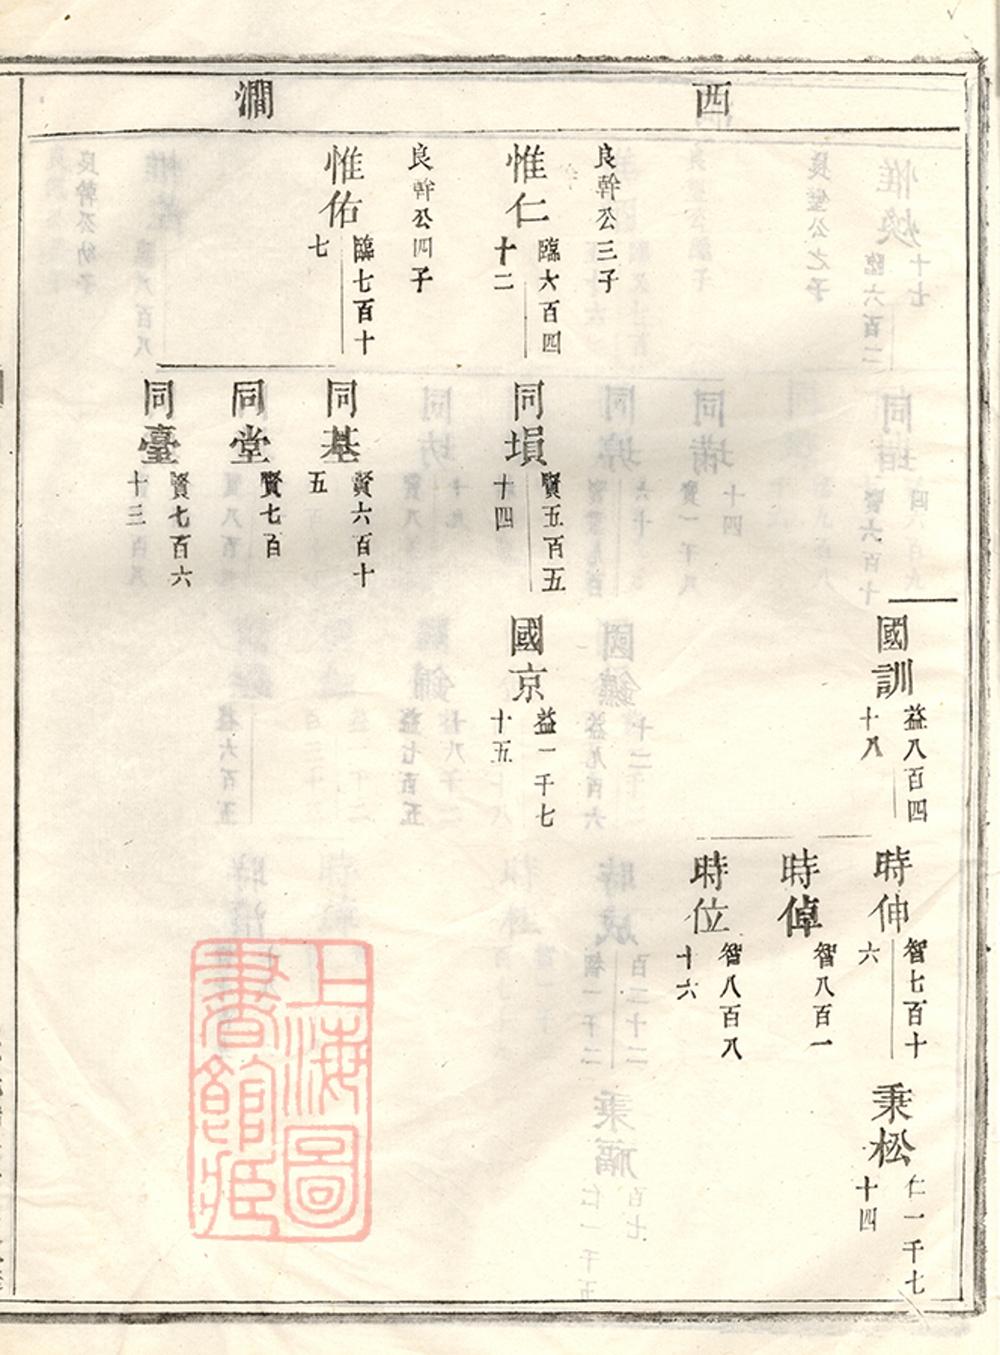 西澗
良幹公三子
惟仁
臨六百四
十二
良幹公四子
惟佑
臨七百十
七
同塤
賢五百五
十四
同基
賢六百十
五
同堂
賢七百
同臺
賢七百六
十三
國訓
益八百四
十八
國京
益一千七
十五
時伸
智七百十
六
時倬
智八百一
時位
智八百八
十六
秉松
仁一千七
十四
上海圖
書館藏